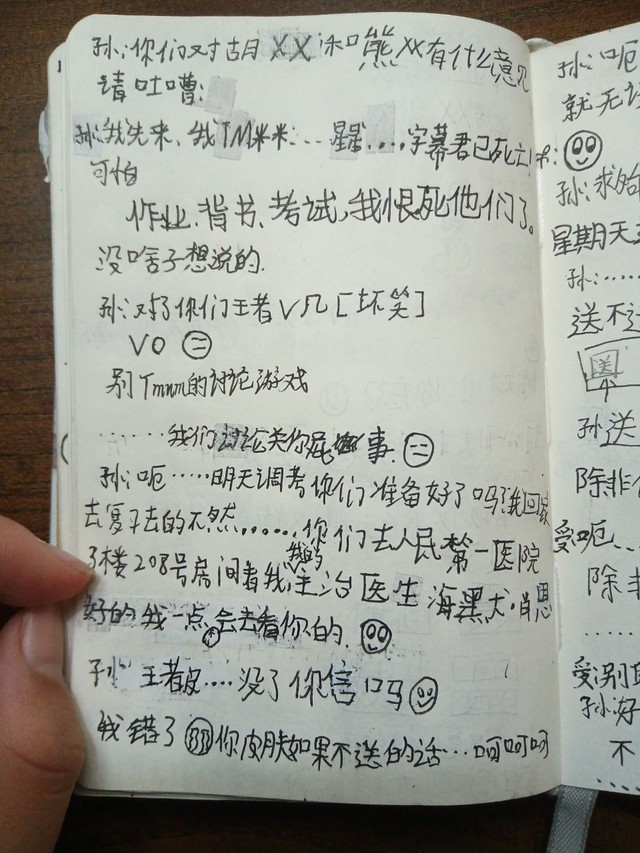 孙:你们对胡XX和熊XX有什么意见
请吐嘈:
孙:我先来、我TM米米....星星....字幕君已死亡!
可怕
作业、背书、考试,我恨死他们了。
没啥子想说的.
孙:对了你们王者V几[坏笑]
V0
别Tmnm的讨论游戏
......我们讨论关你屁事.
孙:呃.....明天调考你们准备好了吗?我回家
去复习去的不然......你们去人民第一医院
3楼208号房间看我,我的主治医生海黑犬·肖恩
好的我一点会去看你的.
孙:王者皮....没了你信吗
我错了 你皮肤如果不送的话...呵呵呵
孙:呃
就无
孙:求
星期天
孙:.....
送不
送
孙送
除非
受呃..
除非
.....
受:别
孙:好
不